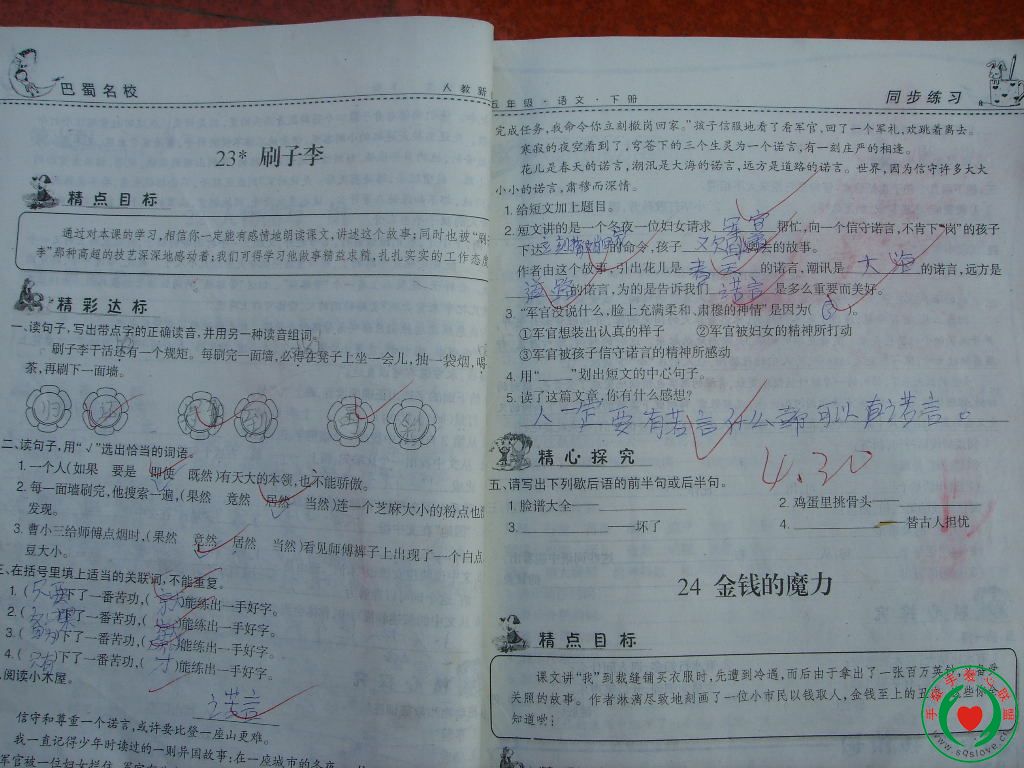 巴蜀名校
人教新
23* 刷子李
精点目标
通过对本课的学习,相信你一定能有感情地朗读课文,讲述这个故事;同时也被“刷
李”那种高超的技艺深深地感动着;我们可得学习他做事精益求精,扎扎实实的工作态度
精彩达标
一、读句子,写出带点字的正确读音,并用另一种读音组词。
刷子李干活还有一个规矩。每刷完一面墙,必得在凳子上坐一会儿,抽一袋烟,喝
茶,再刷下一面墙。
二、读句子,用“√”选出恰当的词语。
1. 一个人(如果 要是 即使 既然)有天大的本领,也不能骄傲。
2. 每一面墙刷完,他搜索一遍,(果然 竟然 居然 当然)连一个芝麻大小的粉点也没
发现。
3. 曹小三给师傅点烟时,(果然 竟然 居然 当然)看见师傅裤子上出现了一个白点
豆大小。
三、在括号里填上适当的关联词,不能重复。
1. (只要)下了一番苦功,(就)能练出一手好字。
2. (如果)下了一番苦功,(就)能练出一手好字。
3. ( )下了一番苦功,( )能练出一手好字。
4. (只有)下了一番苦功,(才)能练出一手好字。
阅读小木屋。
诺言
信守和尊重一个诺言,或许要比登一座山更难。
我一直记得少年时读过的一则异国故事:在一座城市的冬夜
军官被一位妇女拦住
五年级·语文·下册
同步练习
完成任务,我命令你立刻撤岗回家。”孩子信服地看了看军官,回了一个军礼,欢跳着离去。
寒寂的夜空看到了,穹苍下的三个生灵为一个诺言,有一刻庄严的相逢。
花儿是春天的诺言,潮汛是大海的诺言,远方是道路的诺言。世界,因为信守许多大大
小小的诺言,肃穆而深情。
1. 给短文加上题目。
2. 短文讲的是一个冬夜一位妇女请求 军官 帮忙,向一个信守诺言,不肯下“岗”的孩子
下达 的命令,孩子 离去的故事。
作者由这个故事,引出花儿是 春天 的诺言,潮汛是 大海 的诺言,远方是
道路 的诺言,为的是告诉我们 诺言 是多么重要而美好。
3. “军官没说什么,脸上充满柔和、肃穆的神情”是因为( ③ )。
①军官想装出认真的样子 ②军官被妇女的精神所打动
③军官被孩子信守诺言的精神所感动
4. 用“____”划出短文的中心句子。
5. 读了这篇文章,你有什么感想?
人一定要有诺言什么都可以有诺言。
精心探究
4.30
五、请写出下列歇后语的前半句或后半句。
1. 脸谱大全——
2. 鸡蛋里挑骨头——
3. ——坏了
4. ——替古人担忧
24 金钱的魔力
精点目标
课文讲“我”到裁缝铺买衣服时,先遭到冷遇,而后由于拿出了一张百万英钞,
关照的故事。作者淋漓尽致地刻画了一位小市民以钱取人,金钱至上的丑
知道哟;
手牵手爱心联盟
www.sqslove.c